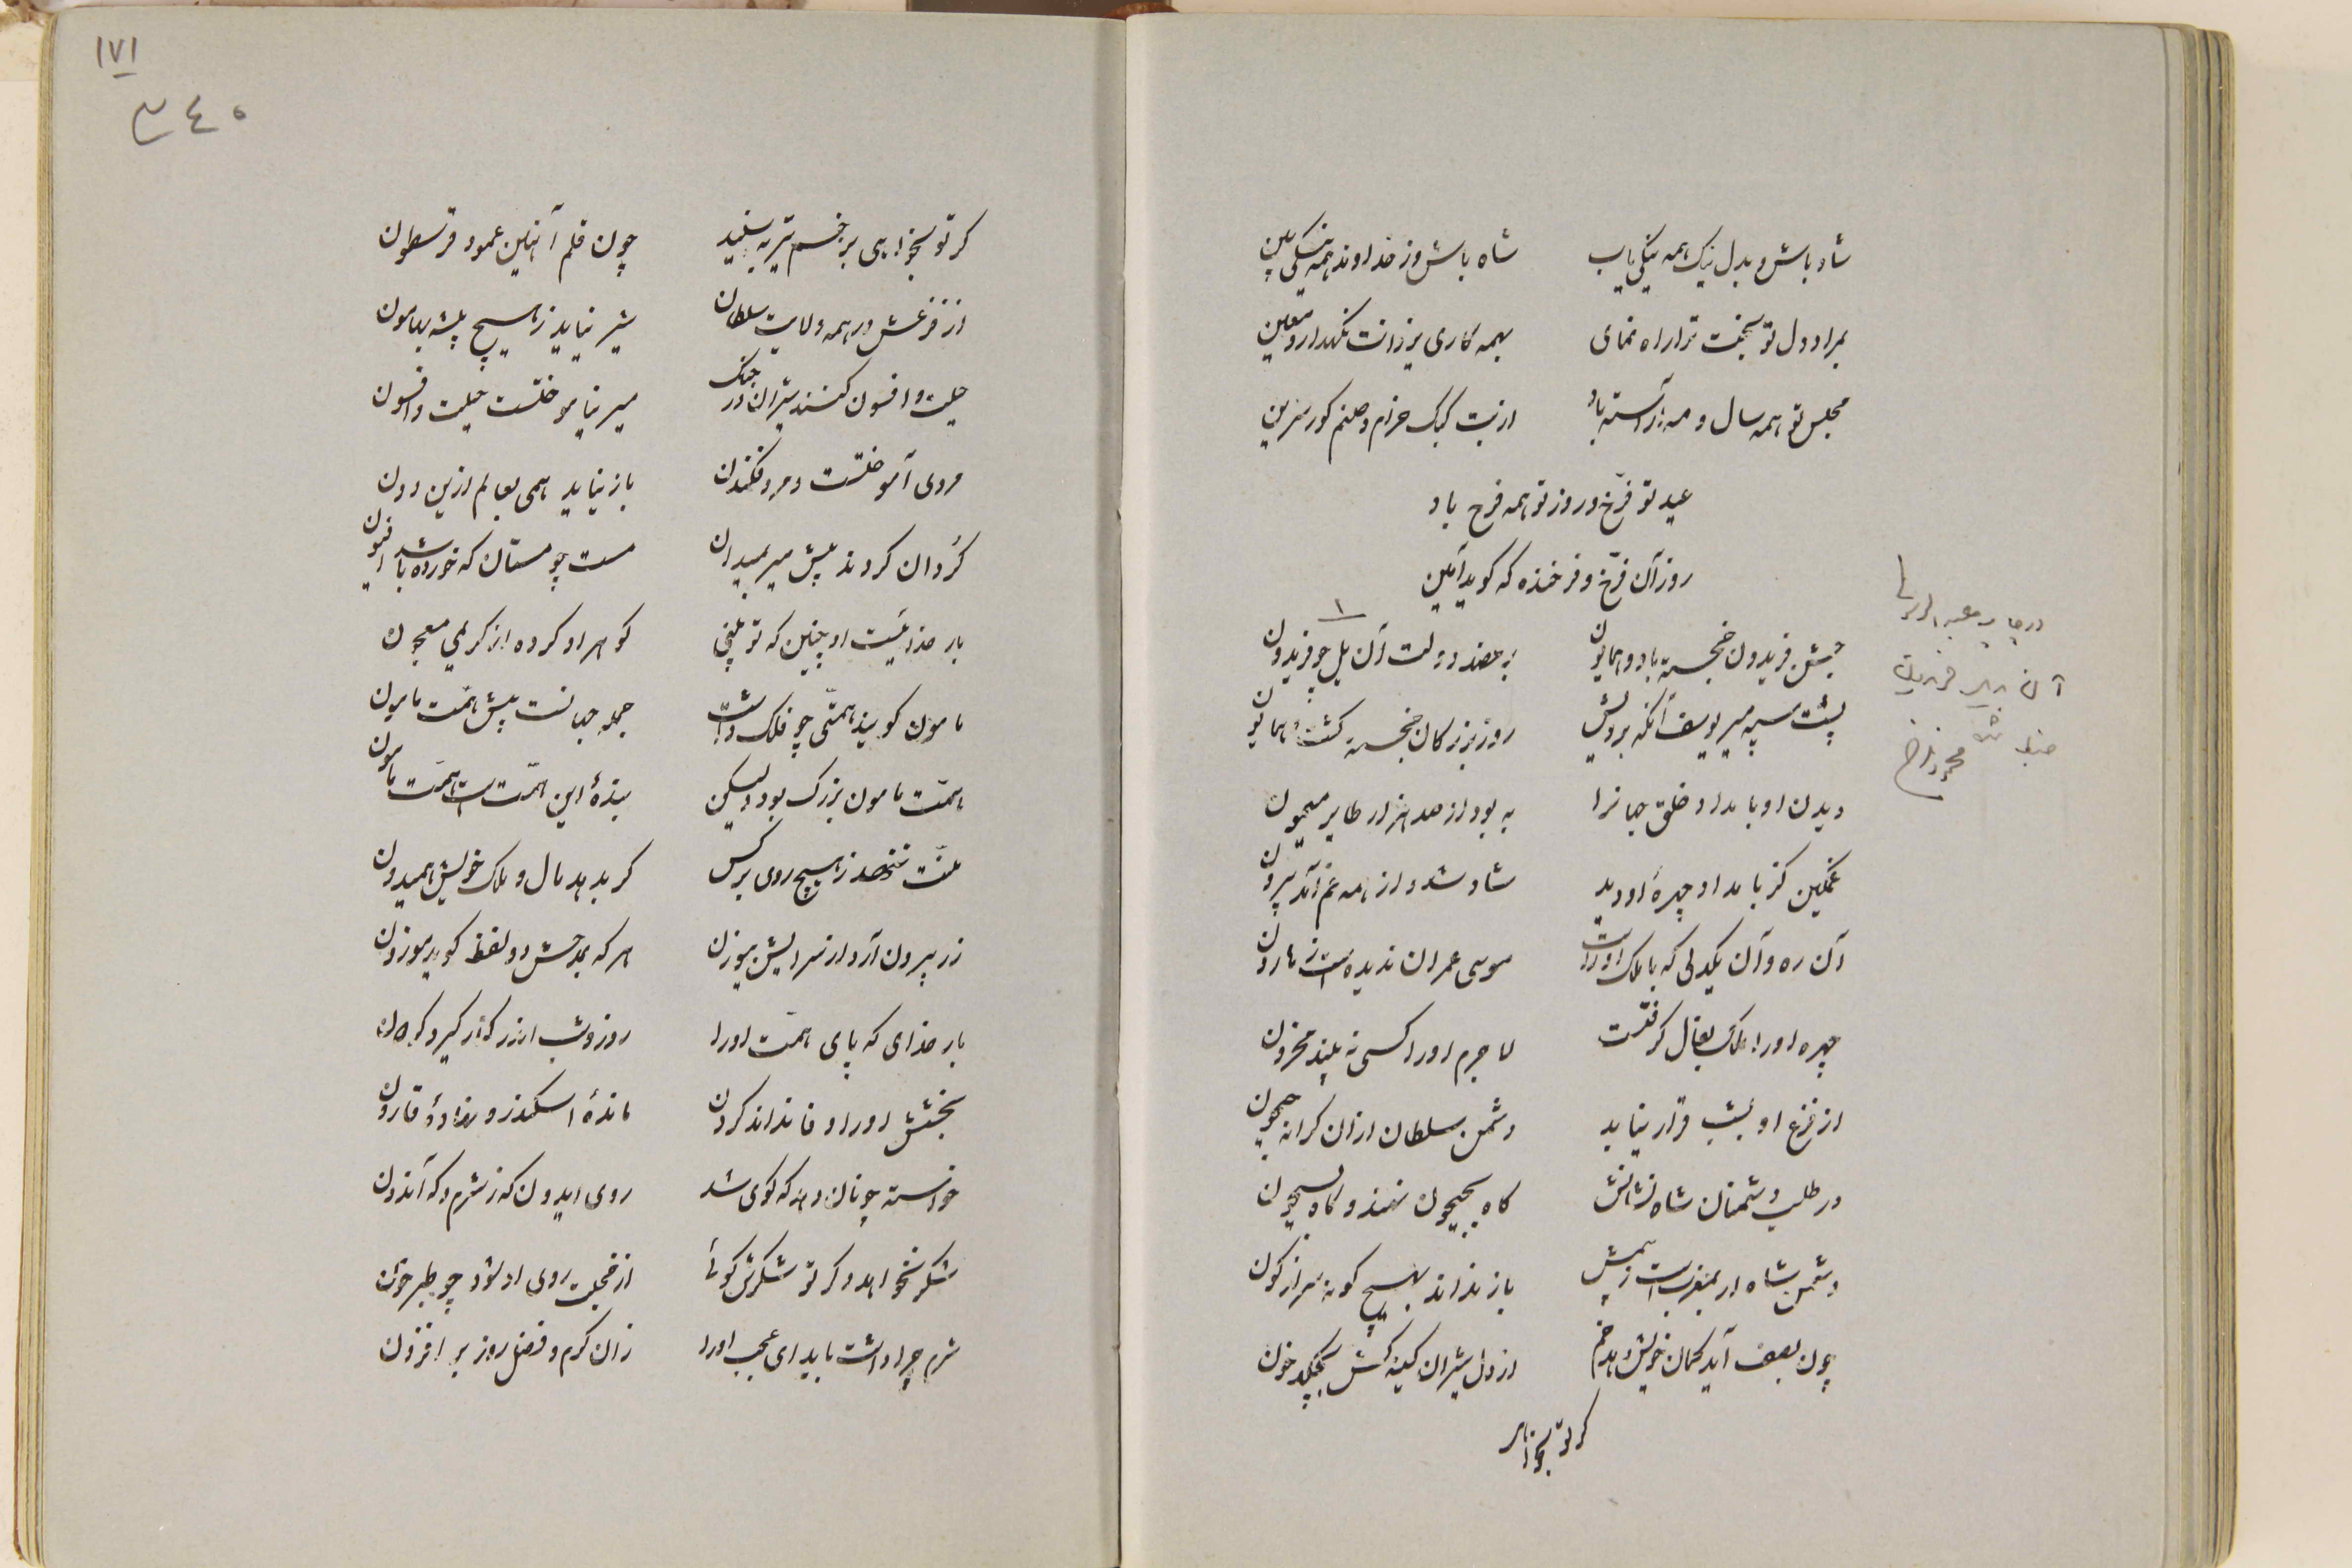 شاد باش و بدل نیک همه نیکی یاب    شاه باش و ز خداوند همه نیکی بین
بمراد دل تو بخت ترا راه نمای    بهمه کاری یزدانت نگهدار و معین
مجلس تو همه سال و مه آراسته باد    از بت کبک خرام و صنم گور سرین
عید تو فرّخ و روز تو همه فرخ باد
روز آن فرّخ و فرخنده که گوید آمین
جشن فریدون خجسته باد و همایون    بر عضد دولت آن یل چو فریدون
پشت سپه میر یوسف آنکه برویش    روز بزرگان خجسته گشت و همایون
دیدن او بامداد خلق جهانرا    به بود از صد هزار طایر میمون
غمگین کز بامداد چهرهٔ او دید    شاد شد و از همه غم آمد بیرون
آن ره و آن یکدلی که با ملک اوراست    موسی عمران ندیده است ز هارون
چهره اورا ملک بفال گرفتست    لاجرم اورا کسی نه بیند محزون
از فزع او بشب قرار نیابد    دشمن سلطان از آن کرانه جیحون
در طلب دشمنان شاه نشانش    گاه بجیحون نهند و گاه بسیحون
دشمن شاه ار بمغربست ز بیمش    باز نداند بهیچ گونه سر از کون
چون بصف آید کمان خویش دهد خم    از دل شیران کینه کش بچکد خون
گر تو بخواهی
درجا پر
آن
محمود
۱۷۱
۳۴۰
گر تو بخواهی برخم تیر به سنبد    چون قلم آهنین عمود فرسطون
از فزعش در همه ولایت سلطان    شیر نیاید ز هیچ بیشه بهامون
حیلت و افسون کنند شیران در جنگ    میر نیاموختست حیلت و افسون
مردی آموختست و مرد فکندن    باز نیاید همی بعالم ازین دون
گردان گردند پیش میر بمیدان    مست چو مستان که خورده باشد افیون
بار خدائیست او چنین که تو بینی    گوهر او کرده از کریمی معجون
مامون گویند همتّی چو فلک داشت    جمله جهانست پیش همت مامون
همّت مامون بزرگ بود ولیکن    بندهٔ این همّت است همّت مامون
منّت ننهد ز هیچ روی بر کس    گر بدهد مال و ملک خویش همیدون
زر بیرون آرد از سرایش بیوزن    هر که بمدحش دو لفظ گوید موزون
بار خدای که پای همّت اورا    روز و شب اندر کنار گیرد گردون
بخشش اورا وفا نداند کردن    ماندهٔ اسکندر و نهادهٔ قارون
خواسته چونان دهد که گوی شد    روی ایدون که ز شرم و که آندون
شکر نخواهد و گر تو شکرش گوئی    از خجلت روی او شود چو طبرخون
شرم چرا داشت باید ای عجب اورا    زان کرم و فضل روز بر افزون